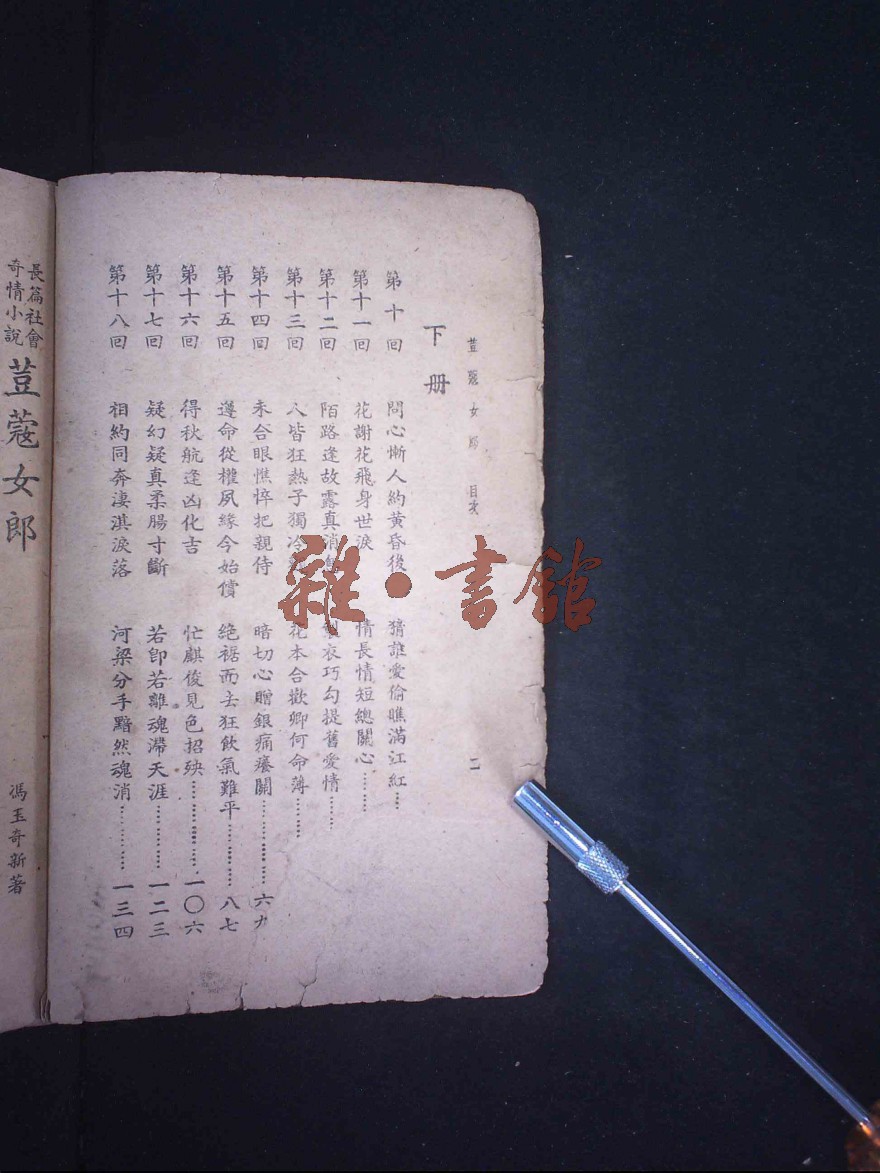 荳蔻女郎 目次 二
下册
第十回 問心慚人約黃昏後 猜誰愛偷瞧滿江紅……
第十一回 花謝花飛身世淚 情長情短總關心……
第十二回 陌路逢故露真消 衣巧勾提舊愛情……
第十三回 人皆狂熱子獨冷 花本合歡卿何命薄……
第十四回 未合眼憔悴把親侍 暗切心贈銀痛癢關……六九
第十五回 遵命從權夙緣今始償 絶裾而去狂飲氣難平……八七
第十六回 得秋航逢凶化吉 忙麒俊見色招殃……一〇六
第十七回 疑幻疑真柔腸寸斷 若卽若離魂滯天涯……一二三
第十八回 相約同奔淒淇淚落 河梁分手黯然魂消……一三四
長篇社會
奇情小說
荳蔻女郎
馮玉奇新著
雜·書館